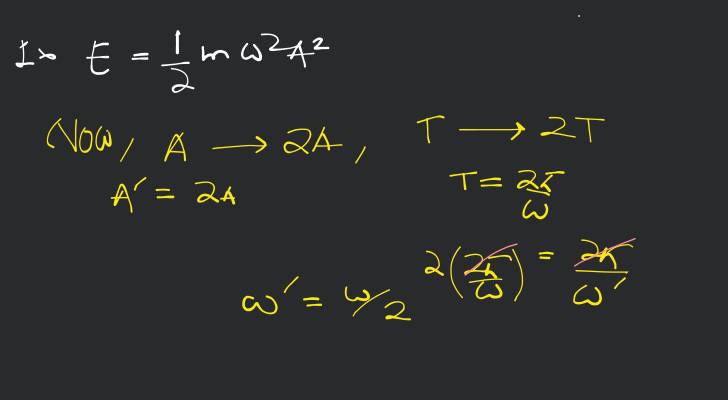 I> E = 1/2 m ω²A²
Now, A → 2A, T → 2T
A′ = 2A T = 2π/ω
ω′ = ω/2 2(2π/ω) = 2π/ω′